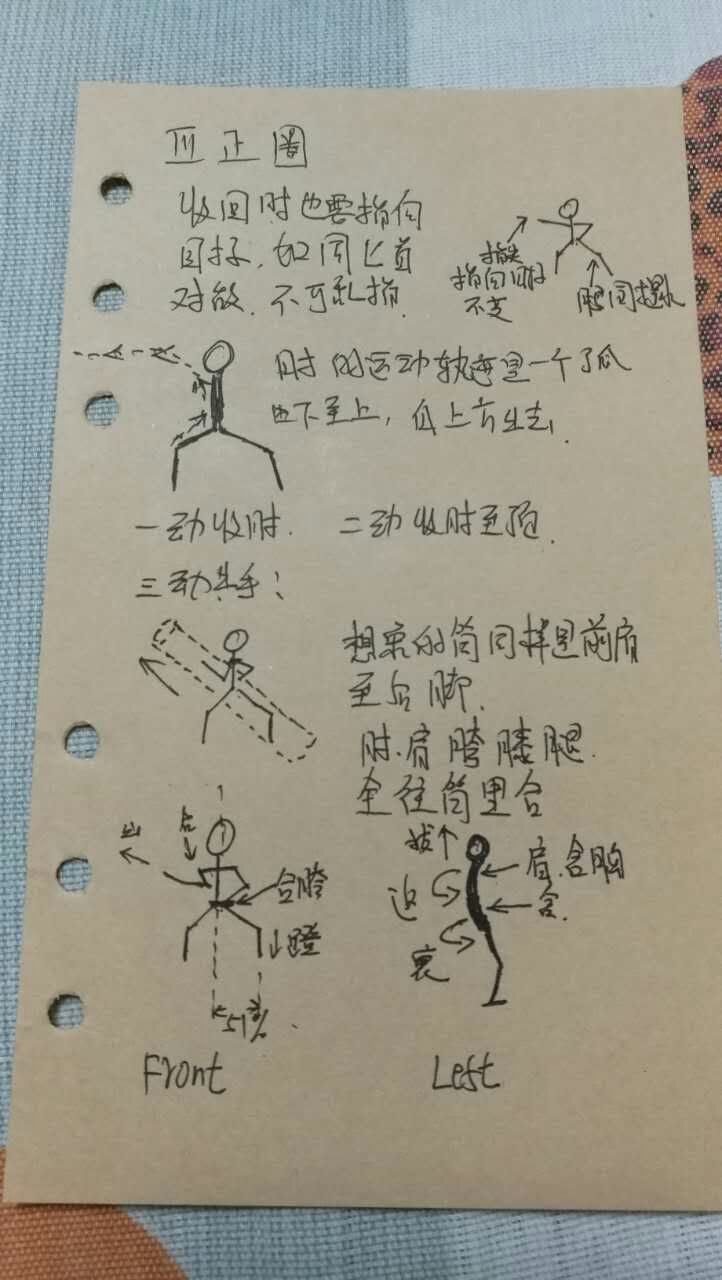 三 正 圈
收回时也要指向
目标、如同匕首
对敌、不可乱指.
指尖
指向目标
不变
腿同提扎
肘的运动轨迹是一个了弧
由下至上,
一动收肘. 二动收肘至顶.
三动出手:
想象的筒同样是前肩
至后脚.
肘.肩 胯 膝 腿.
全往筒里合
出
合
合胯
蹬
51%
拔
肩.含胸
含.
裹
Front
Left